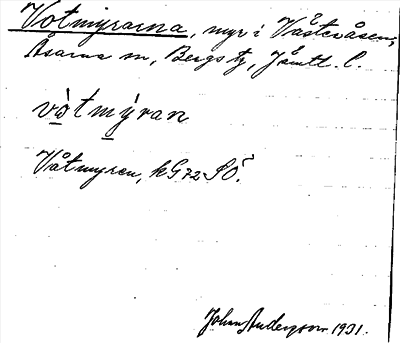 Votmyrarna, myr i Våsteråsen,
Åsarna sn, Bergs tg, Jämtl. l.
vòtmýran
Våtmyren, kG 72 SÖ.
Johan Anderson 1931.